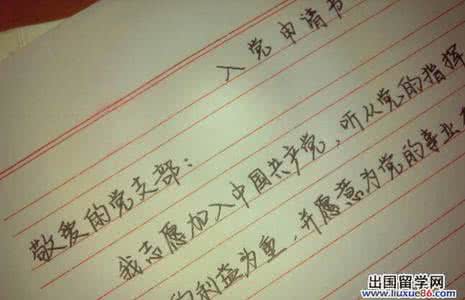 入党申请书
敬爱的党支部：
我志愿加入中国共产党，听从党的指挥
的利益为重，并愿意为党的事业
出国留学网
www.liuxue86.com